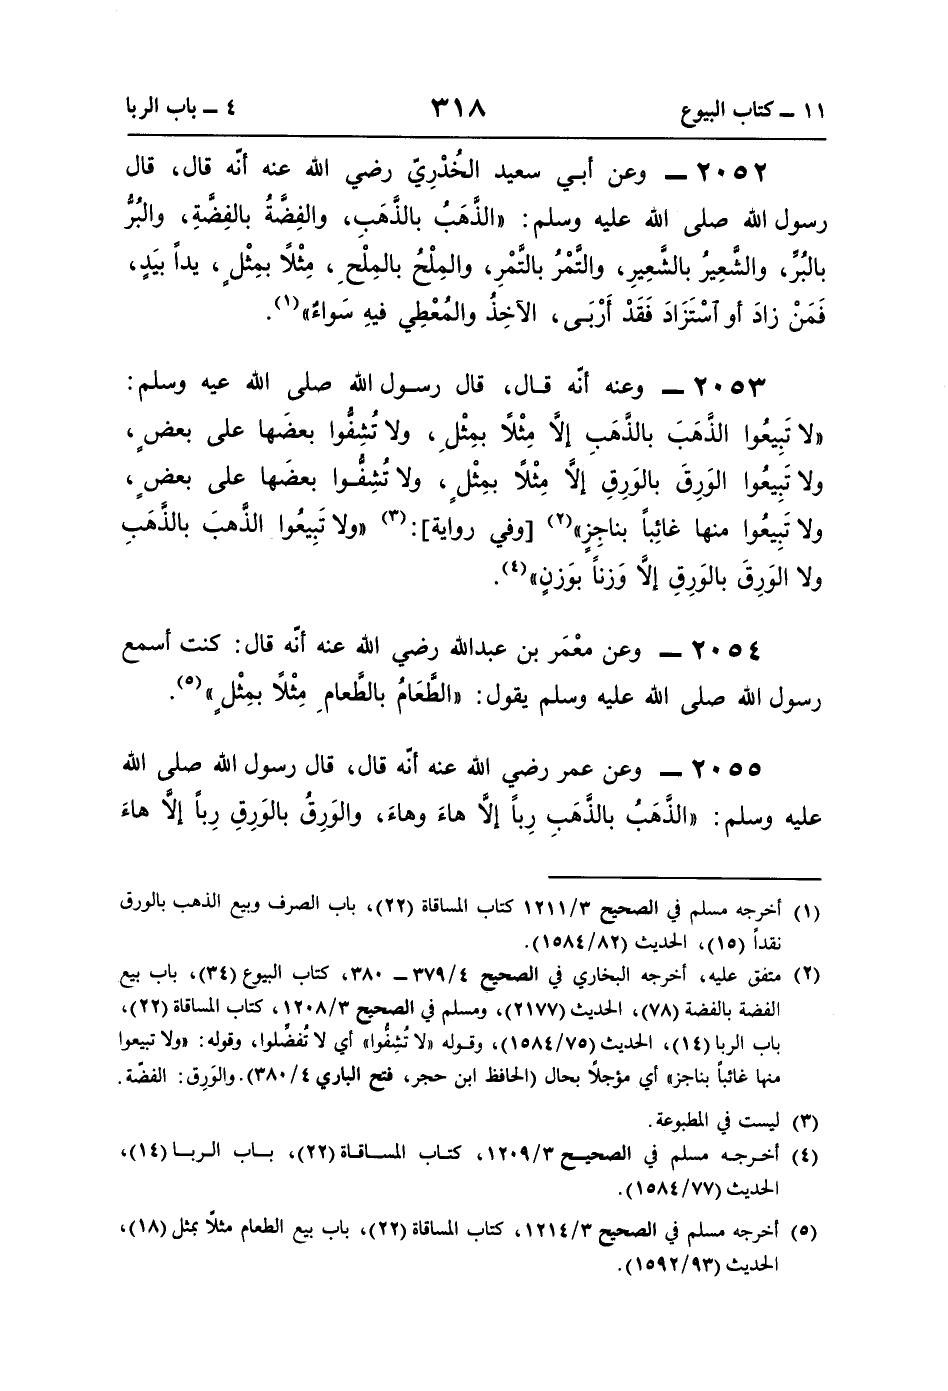 ١١ ــ كتاب البيوع ٣١٨ ٤ ــ باب الربا
٢٠٥٢ ــ وعن أبـي سعيد الخُدْرِيّ رضي الله عنه أنَّه قال، قال
رسول الله صلى الله عليه وسلم: «الذَّهَبُ بالذَّهَبِ، والفِضَّةُ بالفِضَّةِ، والبُرُّ
بالبُرِّ، والشَّعِيرُ بالشَّعِيرِ، والتَّمْرُ بالتَّمْرِ، والمِلْحُ بالمِلْحِ، مِثْلًا بمِثْلٍ، يداً بيَدٍ،
فَمَنْ زادَ أو ٱسْتَزَادَ فَقَدْ أَرْبَـى، الآخِذُ والمُعْطِي فيهِ سَواءٌ»(١).
٢٠٥٣ ــ وعنه أنَّه قـال، قال رسـول الله صلى الله عيه وسلم:
«لا تَبِيعُوا الذَّهَبَ بالذَّهَبِ إلَّا مِثْلًا بمِثْلٍ، ولا تُشِفُّوا بعضَها على بعضٍ،
ولا تَبِيعُوا الوَرِقَ بالوَرِقِ إلَّا مِثْلًا بمِثْلٍ، ولا تُشِفُّـوا بعضَها على بعضٍ،
ولا تَبِيعُوا منها غائِباً بناجِزٍ»(٢) [وفي رواية]:(٣) «ولا تَبِيعُوا الذَّهبَ بالذَّهَبِ
ولا الوَرِقَ بالوَرِقِ إلَّا وَزناً بوَزنٍ»(٤).
٢٠٥٤ ــ وعن معْمَر بن عبدالله رضي الله عنه أنَّه قال: كنت أسمع
رسول الله صلى الله عليه وسلم يقول: «الطَّعَامُ بالطَّعامِ مِثْلًا بمِثْلٍ»(٥).
٢٠٥٥ ــ وعن عمر رضي الله عنه أنَّه قال، قال رسول الله صلى الله
عليه وسلم: «الذَّهَبُ بالذَّهَبِ رِباً إلَّا هاءَ وهاءَ، والوَرِقُ بالوَرِقِ رِباً إلَّا هاءَ
(١) أخرجه مسلم في الصحيح ١٢١١/٣ كتاب المساقاة (٢٢)، باب الصرف وبيع الذهب بالورق
نقداً (١٥)، الحديث (١٥٨٤/٨٢).
(٢) متفق عليه، أخرجه البخاري في الصحيح ٣٧٩/٤ ــ ٣٨٠، كتاب البيوع (٣٤)، باب بيع
الفضة بالفضة (٧٨)، الحديث (٢١٧٧)، ومسلم في الصحيح ١٢٠٨/٣، كتاب المساقاة (٢٢)،
باب الربا (١٤)، الحديث (١٥٨٤/٧٥)، وقوله «لا تُشِفُّوا» أي لا تُفضِّلوا، وقوله: «ولا تبيعوا
منها غائباً بناجز» أي مؤجلاً بحال (الحافظ ابن حجر، فتح الباري ٣٨٠/٤). والوَرِق: الفضّة.
(٣) ليست في المطبوعة.
(٤) أخـرجـه مسلم في الصحيـح ١٢٠٩/٣، كتـاب المسـاقـاة (٢٢)، بـاب الـربـا (١٤)،
الحديث (١٥٨٤/٧٧).
(٥) أخرجه مسلم في الصحيح ١٢١٤/٣، كتاب المساقاة (٢٢)، باب بيع الطعام مثلاً بمثل (١٨)،
الحديث (١٥٩٢/٩٣).